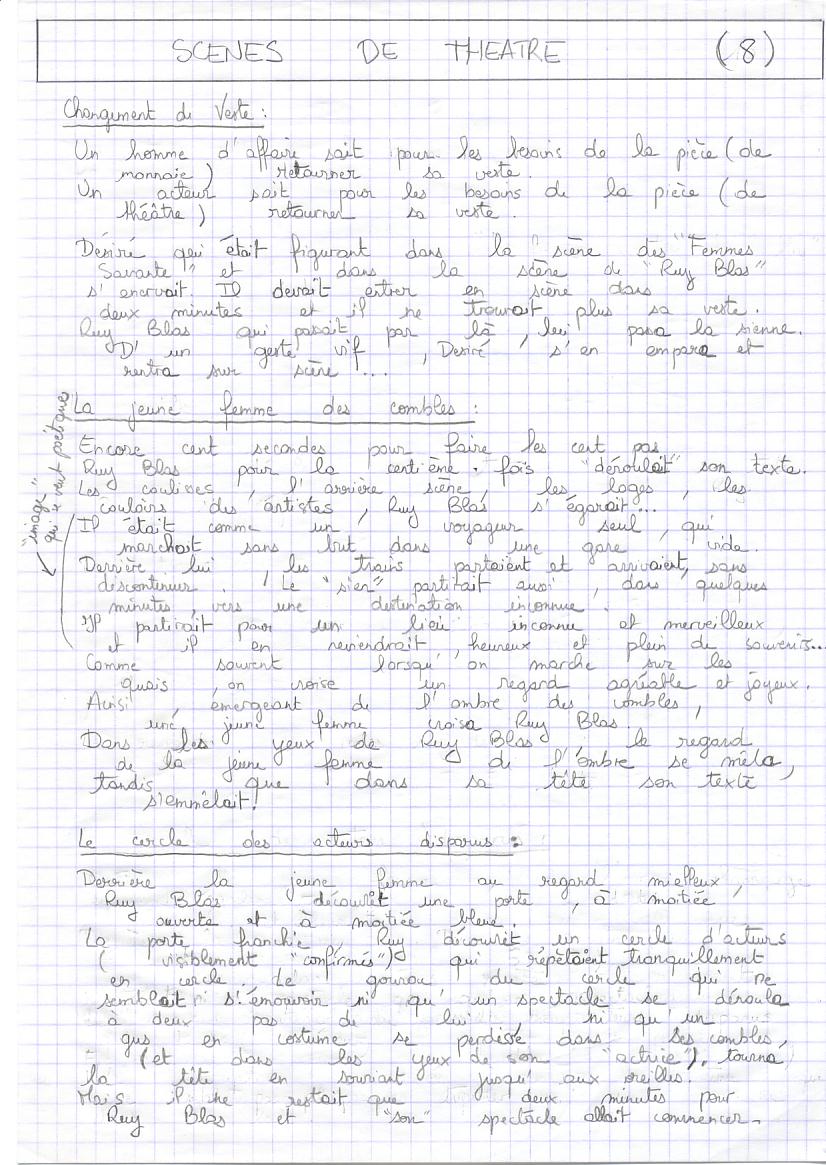 SCENES DE THEATRE (8)
Changement de Veste :
Un homme d'affaire sait pour les besoins de la pièce (de
monnaie) retourner sa veste.
Un acteur sait pour les besoins de la pièce (de
théâtre) retourner sa veste.
Désiré qui était figurant dans la scène des "Femmes
Savante" et dans la scène de "Ruy Blas"
s'énervait. Il devait entrer en scène dans
deux minutes et il ne trouvait plus sa veste.
Ruy Blas qui passait par là, lui passa la sienne.
D'un geste vif, Desiré s'en empara et
rentra sur scène !...
La jeune femme des combles :
Encore cent secondes pour faire les cent pas
Ruy Blas pour la centième fois "déroulait" son texte.
Les coulisses, l'arrière scène, les loges, les
couloirs des artistes, Ruy Blas s'égarait...
"image"
qui se veut poétique
Il était comme un voyageur seul, qui
marchait sans but dans une gare vide.
Derrière lui, les trains partaient et arrivaient, sans
discontinuer. Le "sien" partirait aussi, dans quelques
minutes, vers une destination inconnue.
Il partirait pour un lieu inconnu et merveilleux
et il en reviendrait, heureux et plein de souvenirs...
Comme souvent lorsqu'on marche sur les
quais, on croise un regard agréable et joyeux.
Ainsi, émergeant de l'ombre des combles,
une jeune femme croisa Ruy Blas.
Dans les yeux de Ruy Blas le regard
de la jeune femme de l'ombre se mêla,
tandis que dans sa tête son texte
s'emmêlait!
Le cercle des acteurs disparus :
Derrière la jeune femme au regard mielleux,
Ruy Blas découvrit une porte, à moitiée
ouverte et à moitiée bleue.
La porte franchie, Ruy découvrit un cercle d'acteurs
(visiblement "confirmés") qui répétaient tranquillement
en cercle. Le gourou du cercle qui ne
semblait s'émouvoir ni qu'un spectacle se déroula
à deux pas de lui ni qu'un
gus en costume se perdisse dans ses combles,
(et dans les yeux de son "actrice"), tourna
la tête en souriant jusqu'aux oreilles.
Mais il ne restait que deux minutes pour
Ruy Blas et "son" spectacle allait commencer.